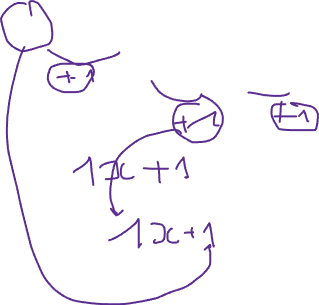 1
+1 +1 +1
1x+1
1x+1